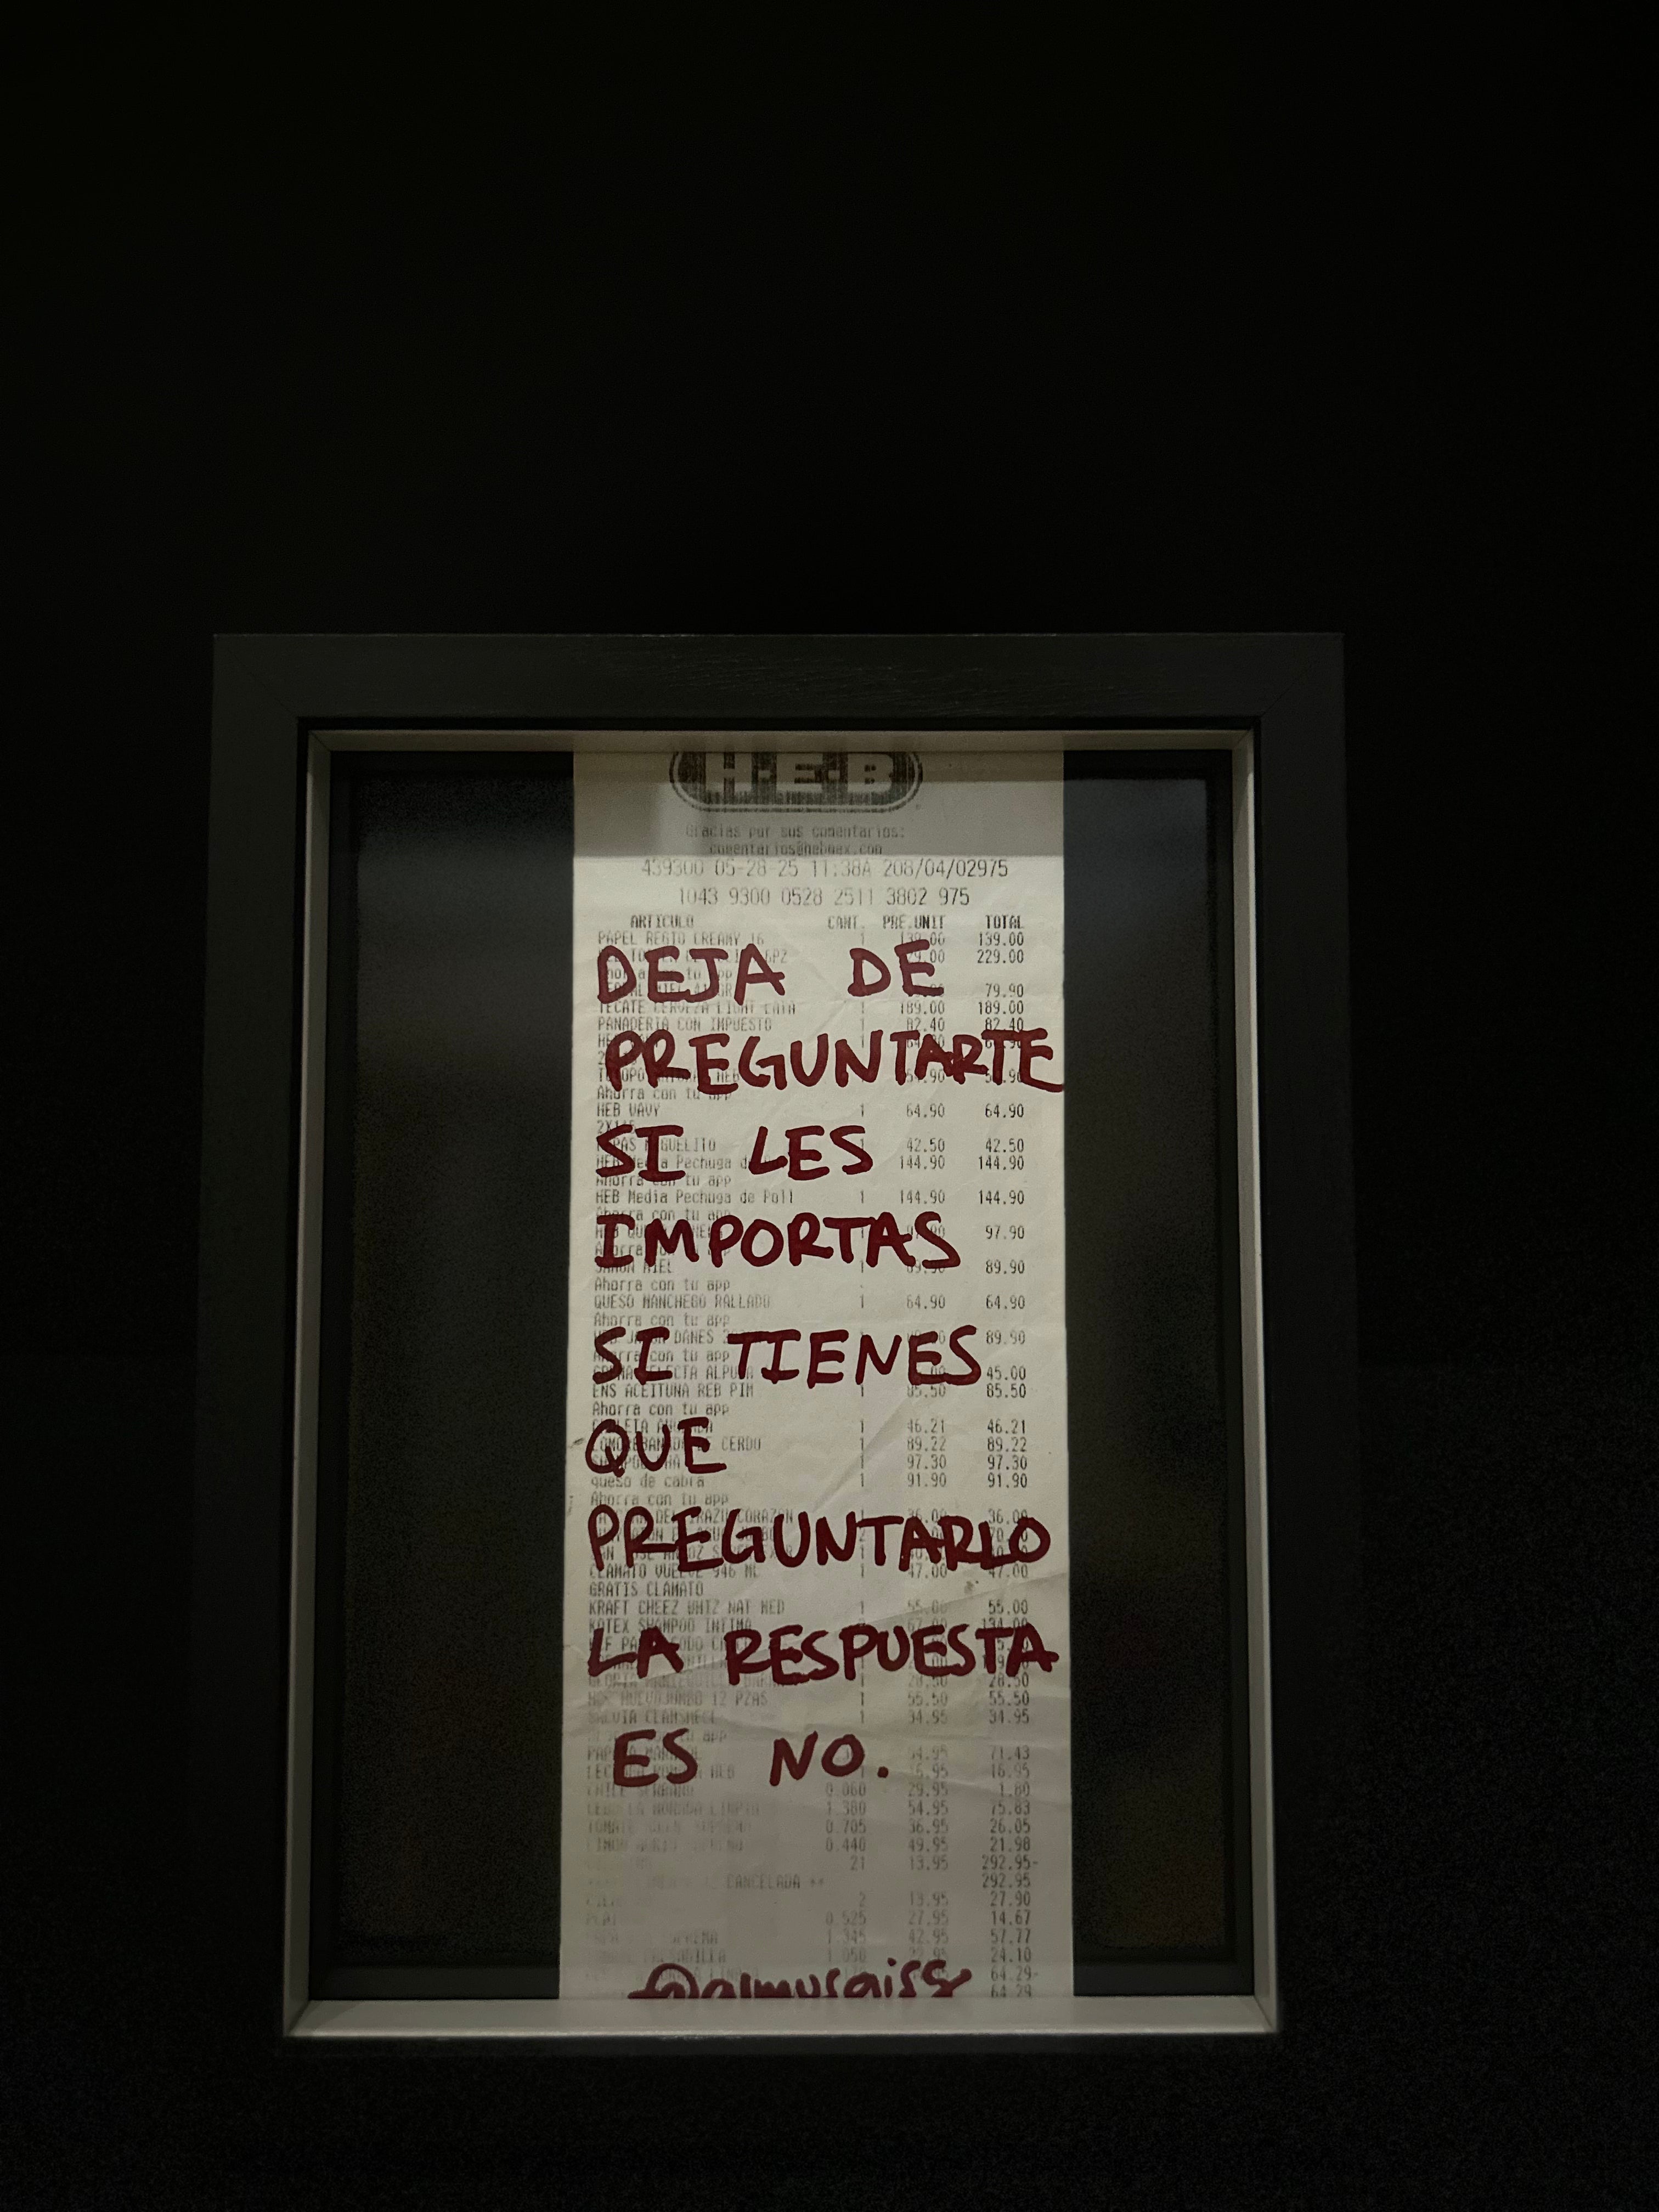 H-E-B
Gracias por sus comentarios:
comentarios@hebmex.com
439300 05-28-25 11:38A 208/04/02975
1043 9300 0528 2511 3802 975
ARTICULO CANT. PRE.UNIT TOTAL
PAPEL REGIO CREAMY 16 1 139.00 139.00
229.00
DEJA DE
79.90
TECATE CERVEZA LIGHT LATA 1 189.00 189.00
PANADERIA CON IMPUESTO 1 82.40 82.40
PREGUNTARTE
Ahorra con tu app
HEB WAVY 1 64.90 64.90
SI LES
42.50 42.50
HEB Media Pechuga 144.90 144.90
Ahorra con tu app
HEB Media Pechuga de Poll 1 144.90 144.90
Ahorra con tu app
IMPORTAS
97.90
JAMON MIEL 1 89.90 89.90
Ahorra con tu app
QUESO MANCHEGO RALLADO 1 64.90 64.90
Ahorra con tu app
SI TIENES
DANES 89.90
Ahorra con tu app
45.00
ENS ACEITUNA REB PIM 1 85.50 85.50
Ahorra con tu app
QUE
1 46.21 46.21
CERDO 1 89.22 89.22
1 97.30 97.30
queso de cabra 1 91.90 91.90
Ahorra con tu app
CORAZON 36.00 36.00
PREGUNTARLO
CLAMATO VUELVE 946 ML 1 47.00 47.00
GRATIS CLAMATO
KRAFT CHEEZ WHIZ NAT MED 1 55.00 55.00
KOTEX SHAMPOO INTIMA 134.00
LA RESPUESTA
28.50 28.50
12 PZAS 1 55.50 55.50
1 34.95 34.95
app
ES NO.
54.95 71.43
HEB 16.95 16.95
0.060 29.95 1.80
1.380 54.95 75.83
TOMATE 0.705 36.95 26.05
0.440 49.95 21.98
21 13.95 292.95-
CANCELADA ** 292.95
2 13.95 27.90
0.525 27.95 14.67
1.345 42.95 57.77
1.050 22.95 24.10
64.29-
64.29
@almusaiss